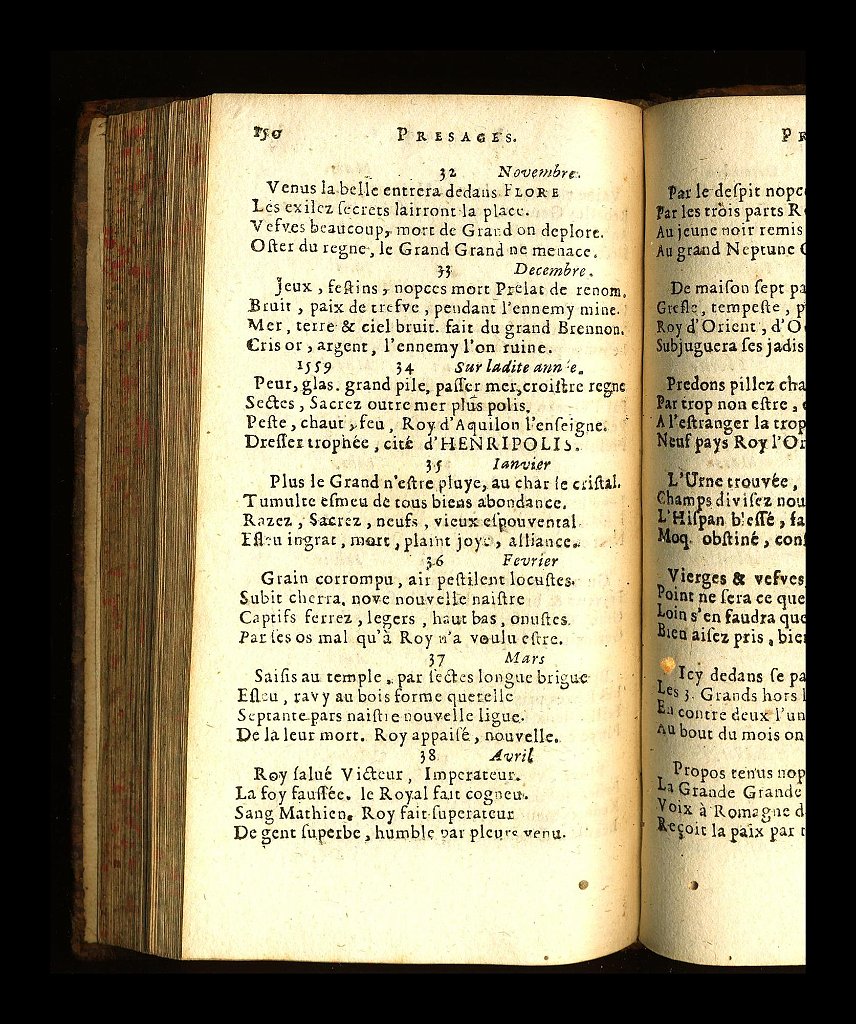 150 PRESAGES.
32 Novembre.
Venus la belle entrera dedans FLORE
Les exilez ſecrets lairront la place.
Veſves beaucoup, mort de Grand on deplore.
Oſter du regne, le Grand Grand ne menace.
33 Decembre.
Jeux, feſtins, nopces mort Prelat de renom.
Bruit, paix de trefve, pendant l'ennemy mine.
Mer, terre & ciel bruit. fait du grand Brennon.
Cris or, argent, l'ennemy l'on ruine.
1559 34 Sur ladite année.
Peur, glas. grand pile, paſſer mer, croiſtre regne
Sectes, Sacrez outre mer plus polis.
Peſte, chaut, feu, Roy d'Aquilon l'enſeigne.
Dreſſer trophée, cité d'HENRIPOLIS.
35 Ianvier
Plus le Grand n'eſtre pluye, au char le criſtal.
Tumulte eſmeu de tous biens abondance.
Razez, Sacrez, neufs, vieux eſpouvental
Eſleu ingrat, mort, plaint joye, alliance.
36 Fevrier
Grain corrompu, air peſtilent locuſtes.
Subit cherra. nove nouvelle naiſtre
Captifs ferrez, legers, haut bas, onuſtes.
Par ſes os mal qu'à Roy n'a voulu eſtre.
37 Mars
Saiſis au temple, par ſectes longue brigue
Eſleu, ravy au bois forme querelle
Septante pars naiſtre nouvelle ligue.
De la leur mort. Roy appaiſé, nouvelle.
38 Avril
Roy ſalué Victeur, Imperateur.
La foy fauſſée. le Royal fait cogneu.
Sang Mathien. Roy fait ſuperateur
De gent ſuperbe, humble par pleurs venu.
PR
Par le deſpit nopce
Par les trois parts R
Au jeune noir remis
Au grand Neptune
De maiſon ſept pa
Greſle, tempeſte, p
Roy d'Orient, d'O
Subjuguera ſes jadis
Predons pillez cha
Par trop non eſtre,
A l'eſtranger la trop
Neuf pays Roy l'Or
L'Urne trouvée,
Champs diviſez nou
L'Hiſpan bleſſé, fa
Moq. obſtiné, conſ
Vierges & veſves
Point ne ſera ce que
Loin s'en faudra que
Bien aiſez pris, bien
Icy dedans ſe pa
Les 3. Grands hors l
En contre deux l'un
Au bout du mois on
Propos tenus nop
La Grande Grande
Voix à Romagne d
Reçoit la paix par t